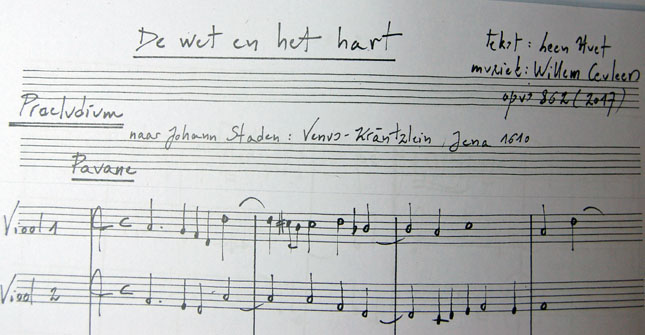 De wet en het hart
tekst: Leen Huet
muziek: Willem Ceuleers
opus 862 (2017)
Praeludium
naar Johann Staden: Venus-Kräntzlein, Jena 1610
Pavane
Viool 1
Viool 2